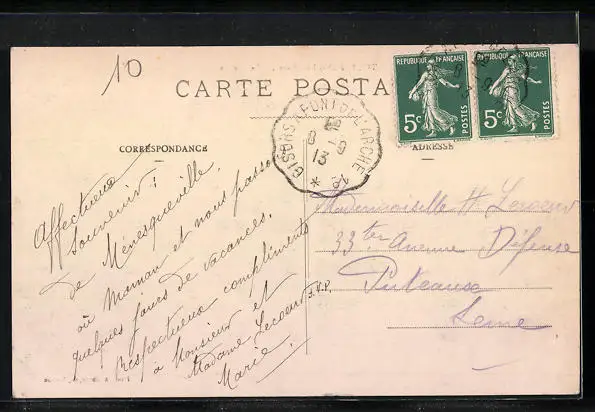 10
CARTE POSTA
REPUBLIQUE FRANÇAISE
5c
POSTES
REPUBLIQUE FRANÇAISE
5c
POSTES
GISORS A PONT-DE-L'ARCHE
8 - 8
13
CORRESPONDANCE
ADRESSE
Affectueux
Souvenir
de Ménesqueville.
où Maman et nous passons
quelques jours de vacances.
Respectueux compliments
à Monsieur et
Madame Lecoeur
Marie.
J.V.P.
Mademoiselle H. Lecoeur
33 ter Avenue Défense
Puteaux
Seine